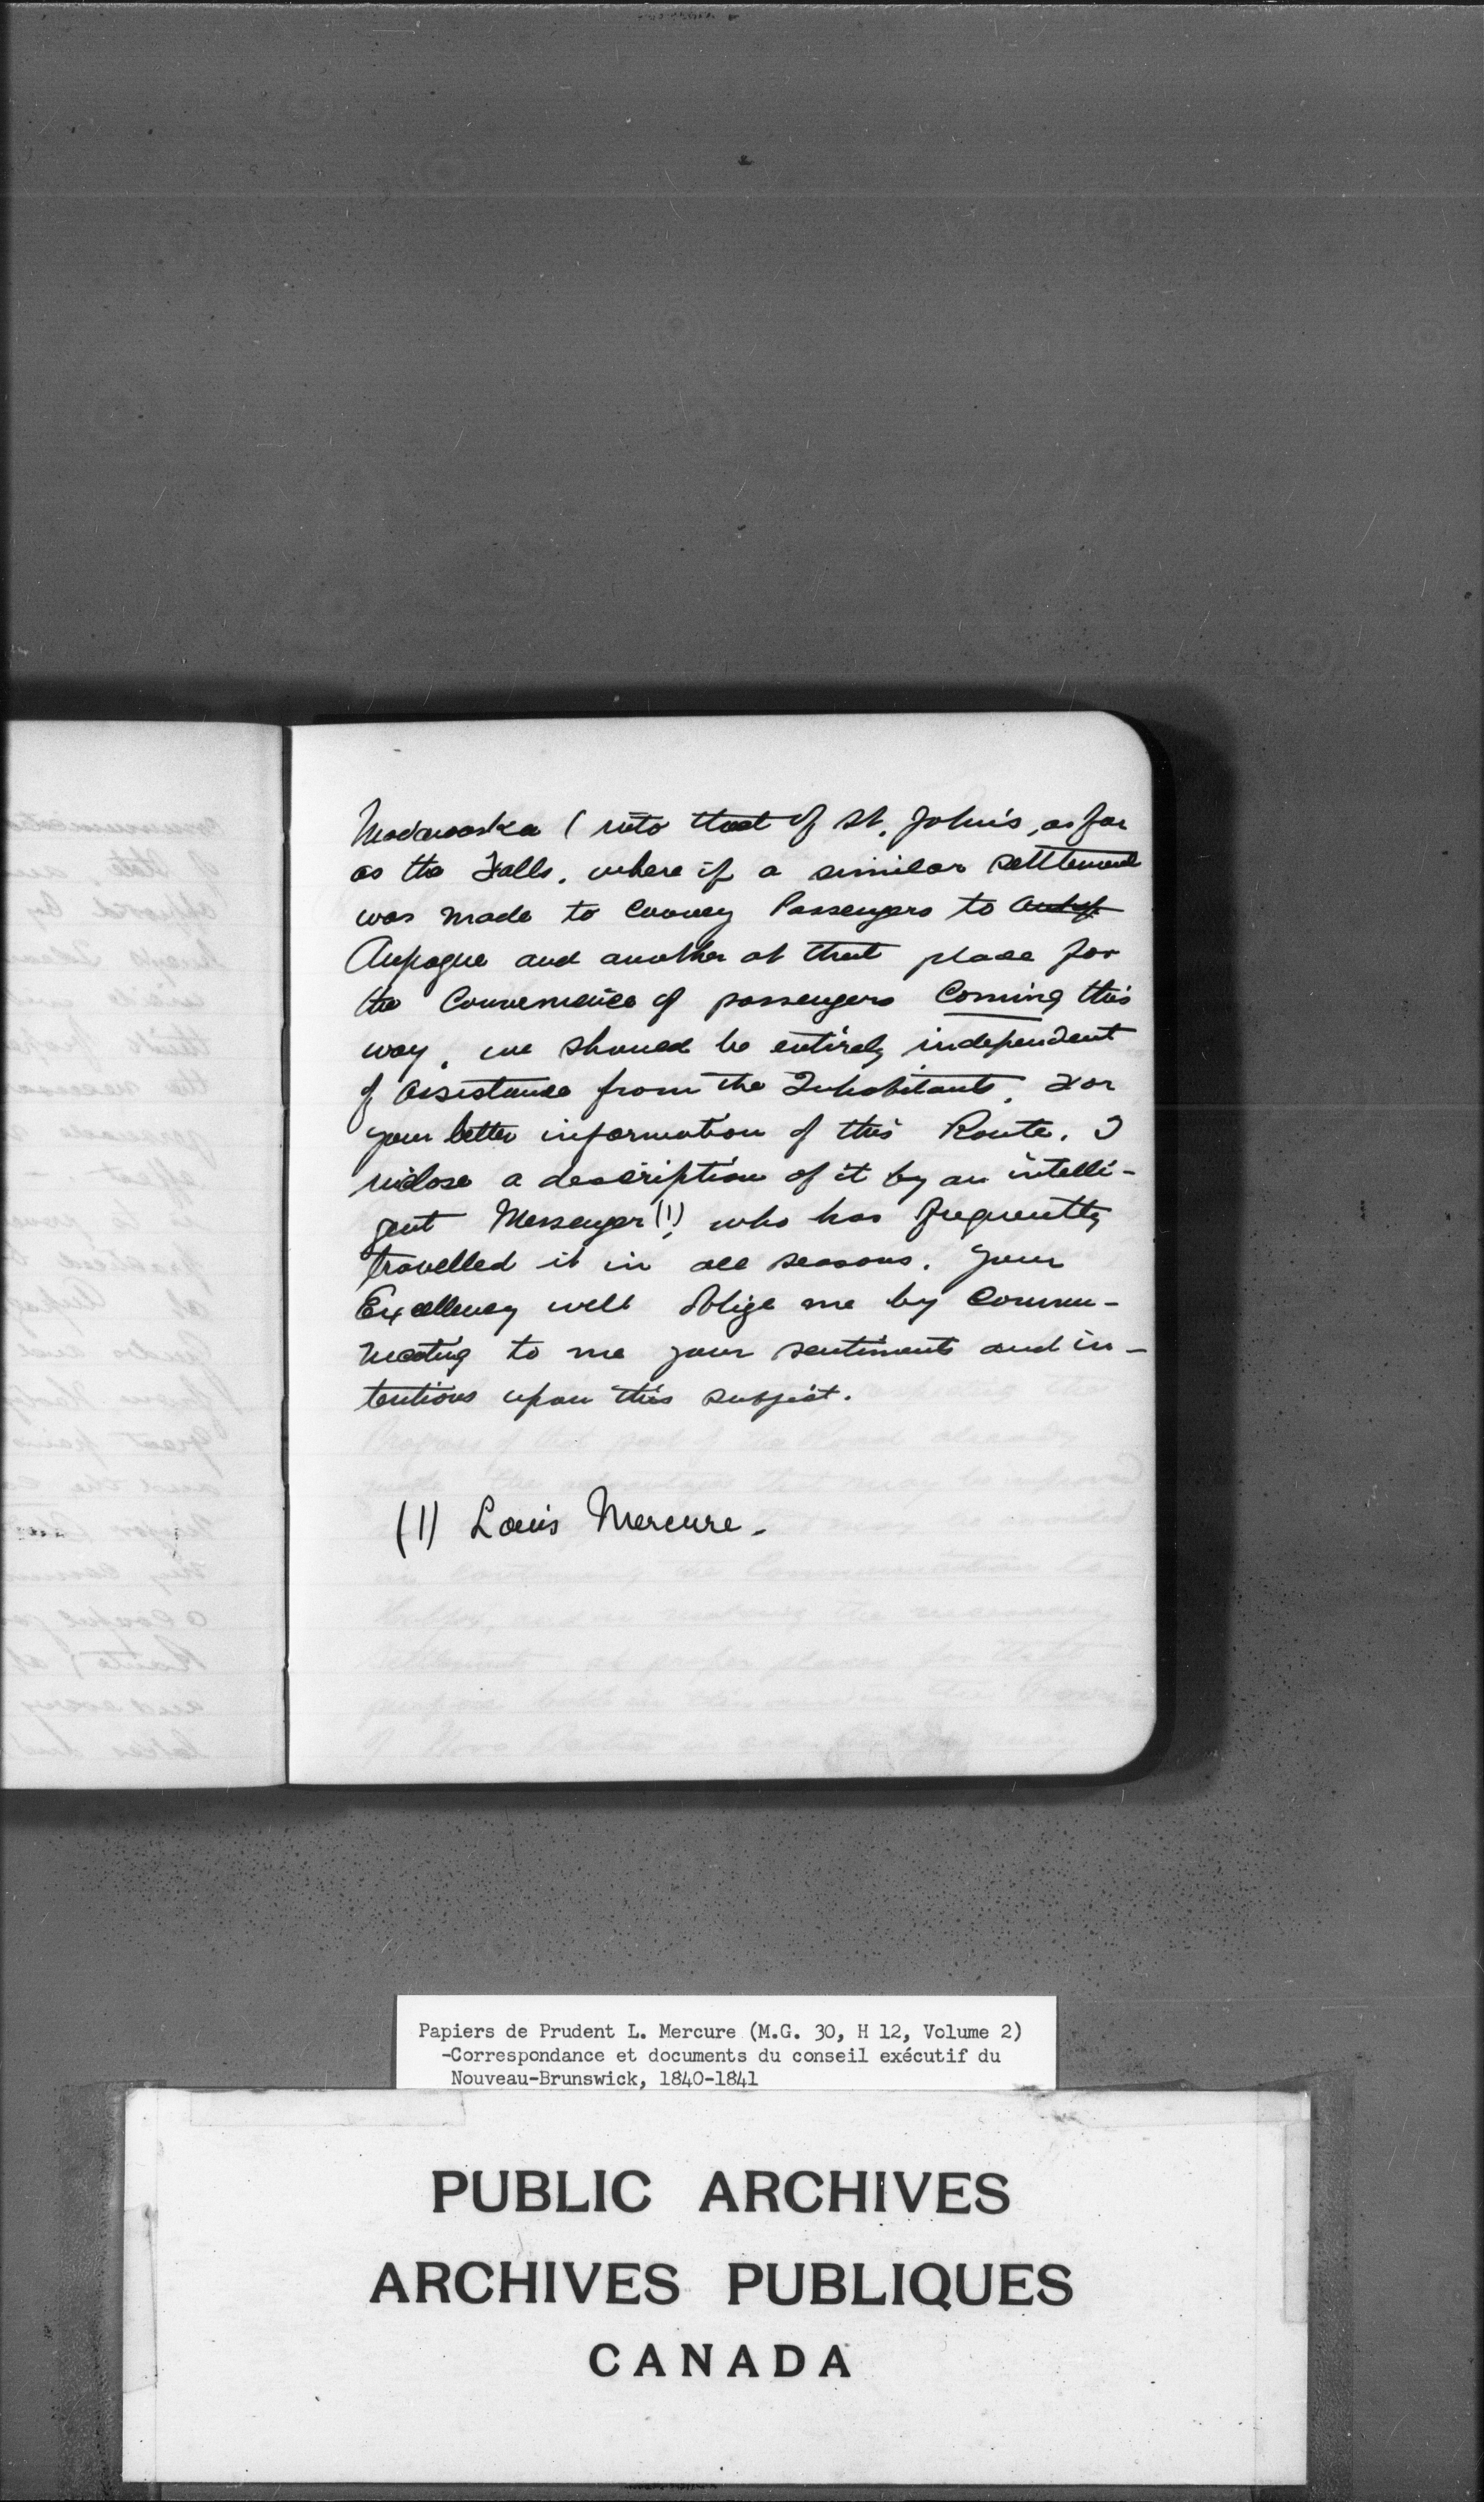 Madawaska ( into that of St. John's, as far
as the Falls. where if a similar settlement
was made to convey Passengers to
Aupague and another at that place for
the Convenience of passengers Coming this
way, we should be entirely independent
of Assistance from the Inhabitants. For
your better information of this Route. I
inclose a description of it by an intelli-
gent Messenger (1), who has frequently
travelled it in all seasons. Your
Excellency will oblige me by Commu-
nicating to me your sentiments and in-
tentions upon this subject.
(1) Louis Mercure.
Papiers de Prudent L. Mercure (M.G. 30, H 12, Volume 2)
-Correspondance et documents du conseil exécutif du
Nouveau-Brunswick, 1840-1841
PUBLIC ARCHIVES
ARCHIVES PUBLIQUES
CANADA